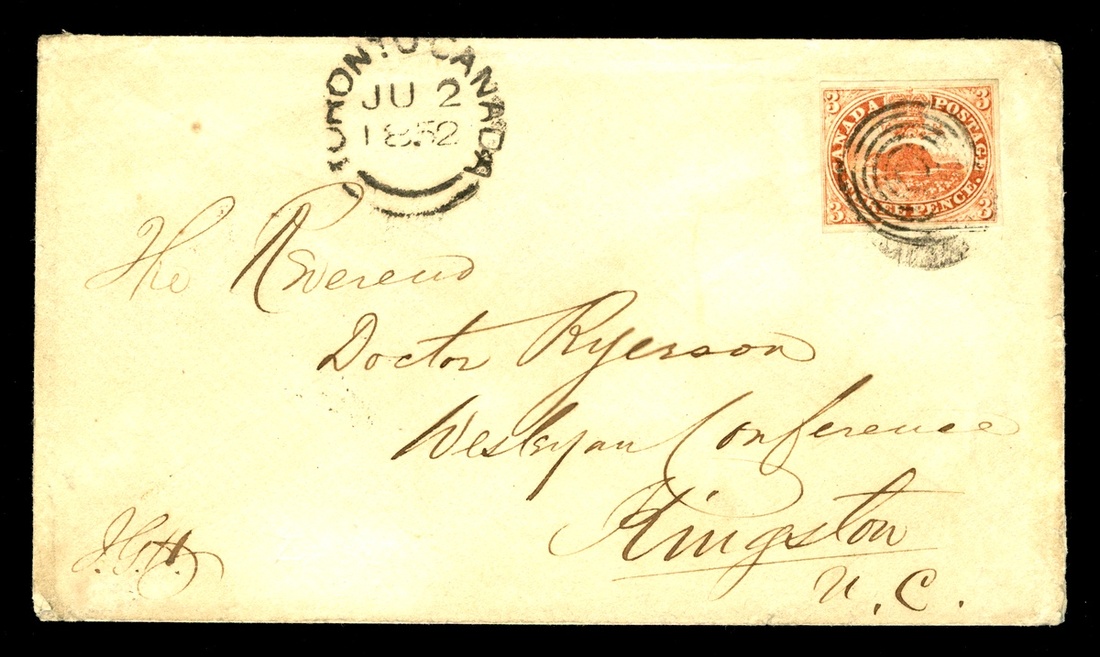 TORONTO CANADA
JU 2
1852
3 3
CANADA POSTAGE
THREE PENCE.
3 3
The Reverend
Doctor Ryerson
Wesleyan Conference
Kingston
U.C.
J.G.H.